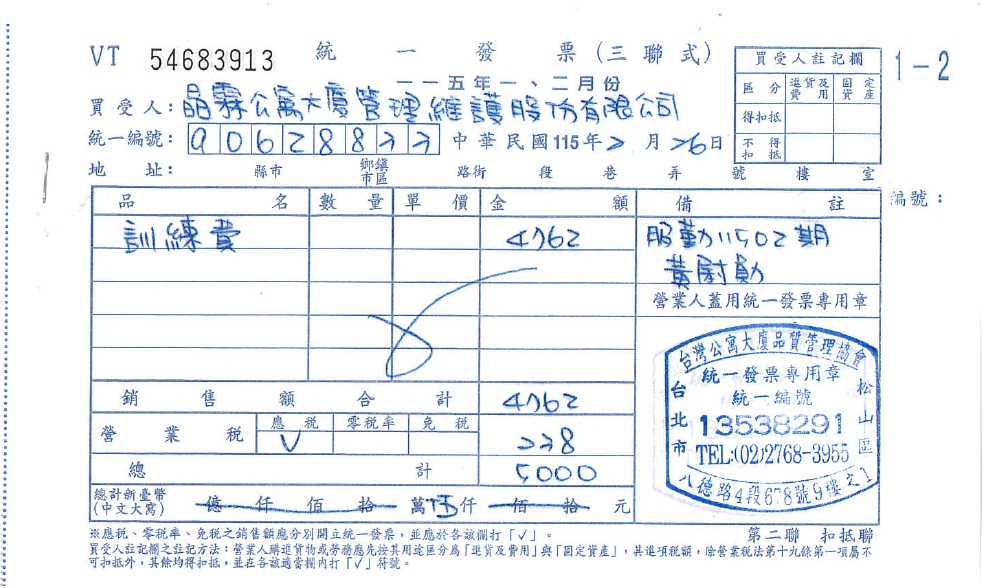 VT 54683913 統一發票(三聯式)
一一五年一、二月份
1-2
買受人註記欄
區分 進貨及費用 固定資產
得扣抵
不得扣抵
買受人:晶霖公寓大廈管理維護股份有限公司
統一編號: 90628877 中華民國115年2月26日
地址: 縣市 鄉鎮市區 路街 段 巷 弄 號 樓 室
編號:
品名 數量 單價 金額 備註
訓練費 4762 服勤11502期
黃尉勛
營業人蓋用統一發票專用章
台灣公寓大廈品質管理協會
統一發票專用章
統一編號
13538291
TEL:(02)2768-3955
台北市 松山區
八德路4段678號9樓之1
銷售額合計 4762
營業稅 應稅 零稅率 免稅
V 238
總計 5000
總計新臺幣(中文大寫) 億仟佰拾萬伍仟佰拾元
※應稅、零稅率、免稅之銷售額應分別開立統一發票,並應於各該欄打「V」。
第二聯 扣抵聯
買受人註記欄之註記方法:營業人購進貨物或勞務應先按其用途區分為「進貨及費用」與「固定資產」,其進項稅額,除營業稅法第十九條第一項屬不
可扣抵外,其餘均得扣抵,並在各該適當欄內打「V」符號。